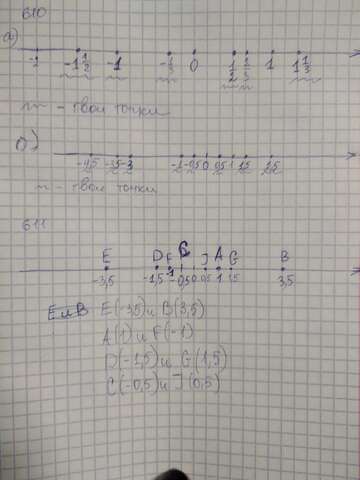 610
а)
-2 -1 1/2 -1 -1/3 0 1/2 2/3 1 1 1/3
~ - твои точки
б)
-4,5 -3,5 -3 -1 -0,5 0 0,5 1 1,5 2,5
~ - твои точки
611
E D F C J A G B
-3,5 -1,5 -1 -0,5 0 0,5 1 1,5 3,5
E(-3,5) и B(3,5)
A(1) и F(-1)
D(-1,5) и G(1,5)
C(-0,5) и J(0,5)